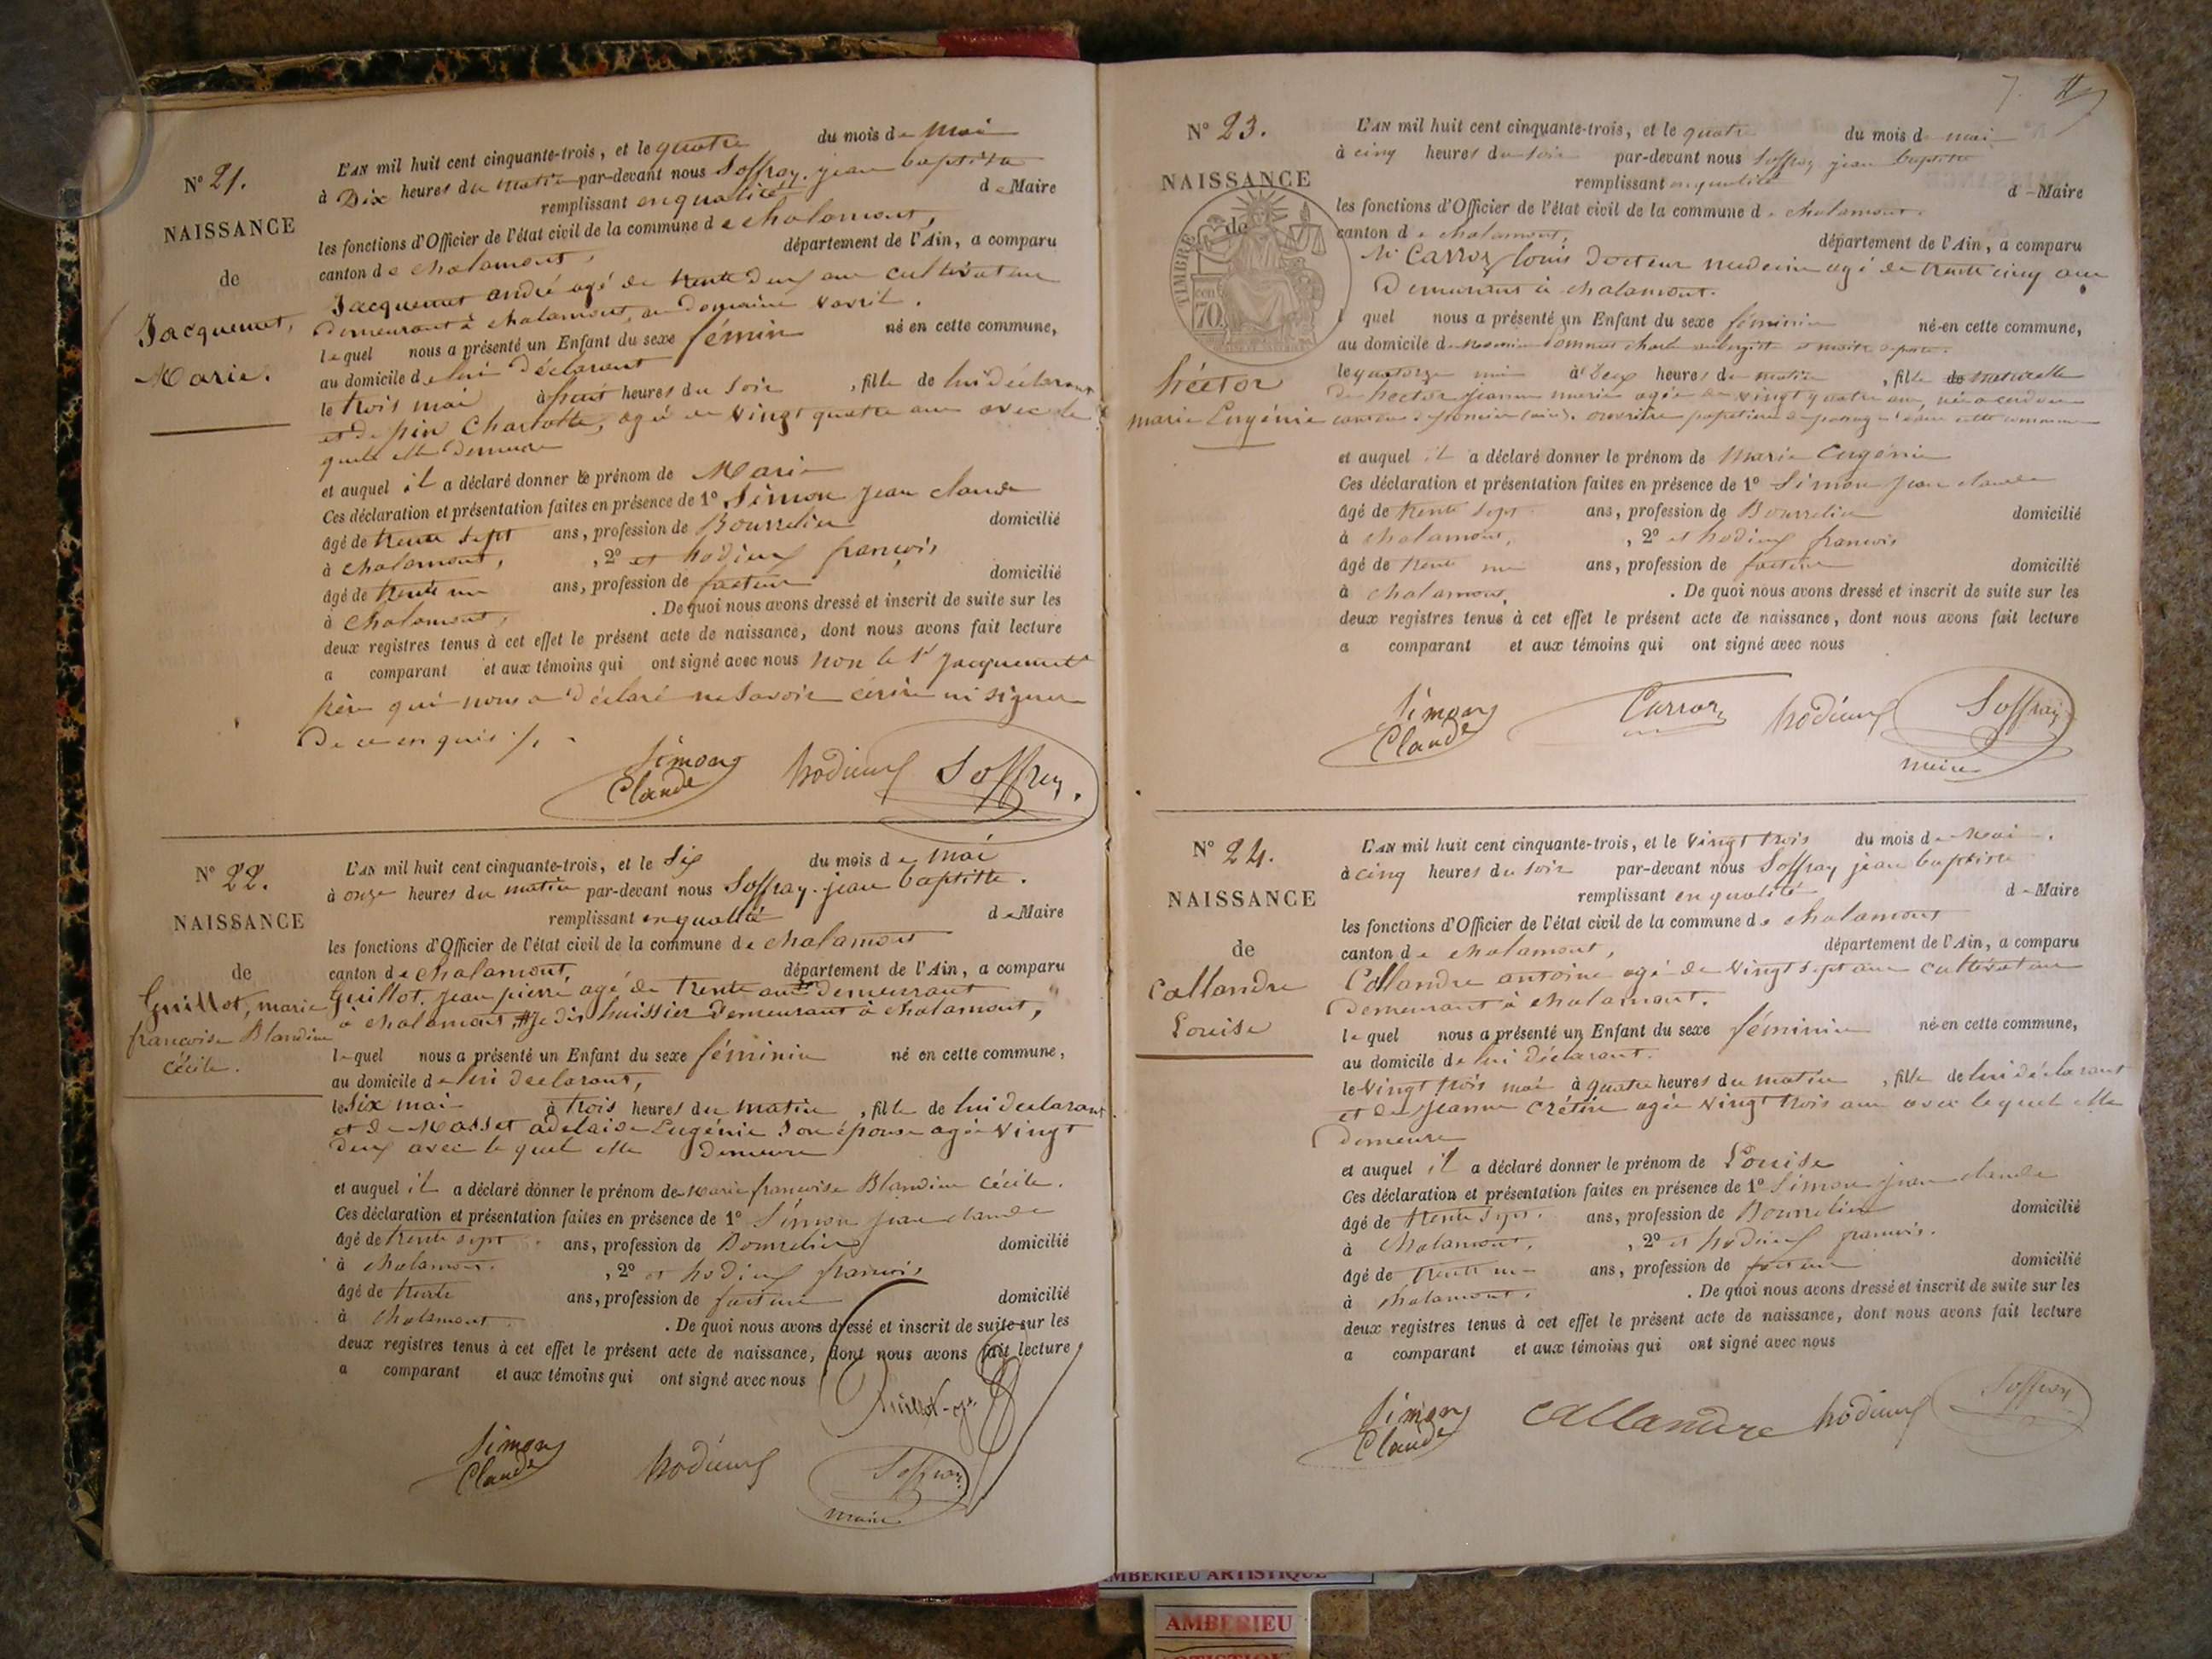 N° 21.
NAISSANCE
de
Jacquemet,
Marie.
L'AN mil huit cent cinquante-trois, et le quatre du mois de Mai
à Dix heures du matin par-devant nous Soffray, jean baptiste
remplissant en qualité de Maire
les fonctions d'Officier de l'état civil de la commune de chalamont,
canton de chalamont, département de l'Ain, a comparu
Jacquemet andré agé de trente deux ans cultivateur
demeurant à chalamont, au domaine
lequel nous a présenté un Enfant du sexe fémin né en cette commune,
au domicile de lui déclarant
le trois mai à heures du soir, fille de lui déclarant
et de pin Charlotte, agé de vingt quatre ans avec le
quel elle demeure
et auquel il a déclaré donner le prénom de Marie
Ces déclaration et présentation faites en présence de 1° Simon jean claude
âgé de trente sept ans, profession de Bourrelier domicilié
à chalamont, , 2° et hodieux françois
âgé de trente un ans, profession de facteur domicilié
à chalamont, . De quoi nous avons dressé et inscrit de suite sur les
deux registres tenus à cet effet le présent acte de naissance, dont nous avons fait lecture
a comparant et aux témoins qui ont signé avec nous non le Sr jacquemet
père qui nous a déclaré ne savoir écrire ni signer
de ce enquis ./.
Simon
Claude hodieux Soffray.
N° 22.
NAISSANCE
de
Guillot, marie
françoise Blandine
cécile.
L'AN mil huit cent cinquante-trois, et le Six du mois de mai
à onze heures du matin par-devant nous Soffray jean baptiste.
remplissant en qualité de Maire
les fonctions d'Officier de l'état civil de la commune de chalamont
canton de chalamont, département de l'Ain, a comparu
Guillot, jean pierre agé de trente ans demeurant
à chalamont, je dis huissier demeurant à chalamont,
lequel nous a présenté un Enfant du sexe féminin né en cette commune,
au domicile de lui declarant,
le Six mai à trois heures du matin, fille de lui declarant
et de Masset adelaide Eugénie son épouse agée vingt
deux avec lequel elle demeure
et auquel il a déclaré donner le prénom de Marie françoise Blandine cécile.
Ces déclaration et présentation faites en présence de 1° Simon jean claude
âgé de trente sept ans, profession de Bourrelier domicilié
à chalamont. , 2° et hodieux francois
âgé de trente ans, profession de facteur domicilié
à chalamont . De quoi nous avons dressé et inscrit de suite sur les
deux registres tenus à cet effet le présent acte de naissance, dont nous avons fait lecture
a comparant et aux témoins qui ont signé avec nous
Guillot
Simon
Claude hodieux Soffray
maire
7.
N° 23.
NAISSANCE
de
TIMBRE
70
héctor
marie Eugénie
L'AN mil huit cent cinquante-trois, et le quatre du mois de mai
à cinq heures du soir par-devant nous Soffray jean baptiste
remplissant en qualité de Maire
les fonctions d'Officier de l'état civil de la commune de chalamont.
canton de chalamont, département de l'Ain, a comparu
Mr Carroz louis Docteur medecin agé de trente cinq ans
Demeurant à chalamont.
lequel nous a présenté un Enfant du sexe féminin né en cette commune,
au domicile de aubergiste et maitre de poste.
le quatorze mai à Deux heures du matin, fille de naturelle
de hector jeanne marie agée de vingt quatre ans, née à
canton de ouvrière de passage dans cette commune
et auquel il a déclaré donner le prénom de Marie Eugénie
Ces déclaration et présentation faites en présence de 1° Simon jean claude
âgé de trente sept ans, profession de Bourrelier domicilié
à chalamont, , 2° et hodieux francois
âgé de trente un ans, profession de facteur domicilié
à chalamont, . De quoi nous avons dressé et inscrit de suite sur les
deux registres tenus à cet effet le présent acte de naissance, dont nous avons fait lecture
a comparant et aux témoins qui ont signé avec nous
Simon
Claude Carroz hodieux Soffray
maire
N° 24.
NAISSANCE
de
Callandre
Louise
L'AN mil huit cent cinquante-trois, et le vingt trois du mois de Mai.
à cinq heures du soir par-devant nous Soffray jean baptiste
remplissant en qualité de Maire
les fonctions d'Officier de l'état civil de la commune de chalamont
canton de chalamont, département de l'Ain, a comparu
Callandre antoine agé de vingt sept ans cultivateur
demeurant à chalamont.
lequel nous a présenté un Enfant du sexe féminin né en cette commune,
au domicile de lui déclarant.
le vingt trois mai à quatre heures du matin, fille de lui déclarant
et de jeanne crétin agée vingt trois ans avec lequel elle
demeure
et auquel il a déclaré donner le prénom de Louise
Ces déclaration et présentation faites en présence de 1° Simon jean claude
âgé de trente sept. ans, profession de Bourrelier domicilié
à chalamont, , 2° et hodieux francois.
âgé de trente un ans, profession de facteur domicilié
à chalamont. . De quoi nous avons dressé et inscrit de suite sur les
deux registres tenus à cet effet le présent acte de naissance, dont nous avons fait lecture
a comparant et aux témoins qui ont signé avec nous
Simon
Claude callandre hodieux Soffray
AMBERIEU ARTISTIQUE
AMBERIEU
ARTISTIQUE